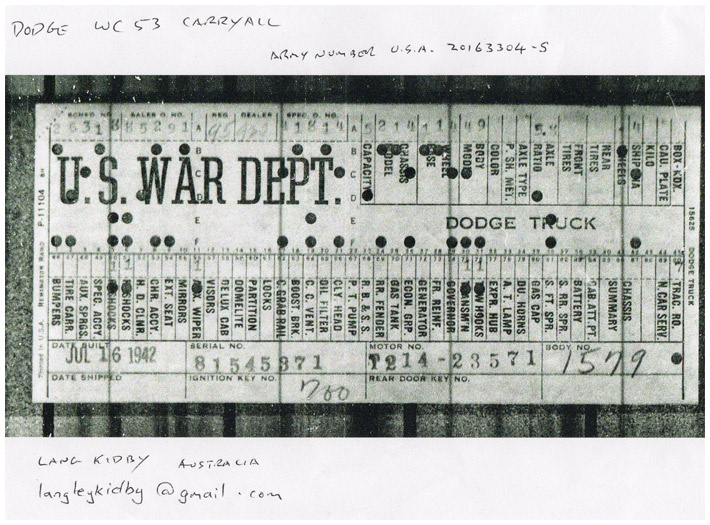 DODGE WC 53 CARRYALL
ARMY NUMBER U.S.A. 20163304-S
SCHED. NO. SALES O. NO. REG DEALER SPEC. O. NO.
U.S. WAR DEPT.
CAPACITY
MODEL
CHASSIS
BASE
WHEEL
MOD
BODY
COLOR
P. SH. MET.
AXLE TYPE
AXLE RATIO
FRONT TIRES
REAR TIRES
WHEELS
SHIP VIA
KILO
CAU. PLATE
BOX-KDX.
DODGE TRUCK
P-11104
REMINGTON RAND
Printed in U.S.A.
15625 DODGE TRUCK
BUMPERS
TIRE CARR.
AUX. SPRGS
SPEC. ACCT
H. D. CLNR.
CHR. ACCY.
EXT. SEAT
MIRRORS
VISORS
DELUX CAB
DOMELITE
PARTITION
LOCKS
C. GRAB RAIL
BOOST BRK.
C. C. VENT.
OIL FILTER
CLY HEAD
P. T. PUMP
R. B. & S.
RR. FENDER
GAS TANK
EQON GRP
GENERATOR
FR. REINF.
GOVERNOR
TRANSM'N
TOW HOOKS
EXPR. HUB
A. T. LAMP
DU. HORNS
GAS CAP
S. FT. SPR.
S. RR. SPR.
BATTERY
CAB ATT. PT.
SUMMARY
CHASSIS
N. CAR SERV.
TRAC RD.
DATE BUILT SERIAL NO. MOTOR NO. BODY NO.
JUL 16 1942 81545371 T214-23571 1579
DATE SHIPPED IGNITION KEY NO. REAR DOOR KEY NO.
700
LANG KIDBY AUSTRALIA
langleykidby@gmail.com